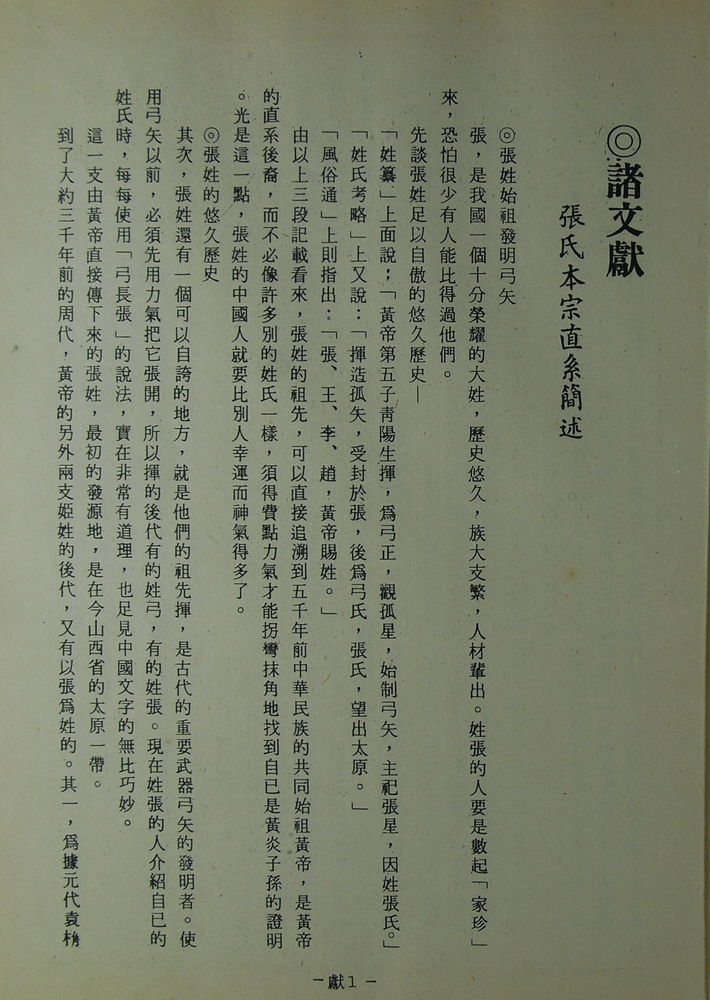 ◎諸文獻
張氏本宗直系簡述
◎張姓始祖發明弓矢
張，是我國一個十分榮耀的大姓，歷史悠久，族大支繁，人材輩出。姓張的人要是數起「家珍」
來，恐怕很少有人能比得過他們。
先談張姓足以自傲的悠久歷史—
「姓纂」上面說；「黃帝第五子青陽生揮，爲弓正，觀孤星，始制弓矢，主祀張星，因姓張氏。」
「姓氏考略」上又說：「揮造孤矢，受封於張，後爲弓氏，張氏，望出太原。」
「風俗通」上則指出：「張、王、李、趙，黃帝賜姓。」
由以上三段記載看來，張姓的祖先，可以直接追溯到五千年前中華民族的共同始祖黃帝，是黃帝
的直系後裔，而不必像許多別的姓氏一樣，須得費點力氣才能拐彎抹角地找到自已是黃炎子孫的證明
。光是這一點，張姓的中國人就要比別人幸運而神氣得多了。
◎張姓的悠久歷史
其次，張姓還有一個可以自誇的地方，就是他們的祖先揮，是古代的重要武器弓矢的發明者。使
用弓矢以前，必須先用力氣把它張開，所以揮的後代有的姓弓，有的姓張。現在姓張的人介紹自已的
姓氏時，每每使用「弓長張」的說法，實在非常有道理，也足見中國文字的無比巧妙。
這一支由黃帝直接傳下來的張姓，最初的發源地，是在今山西省的太原一帶。
到了大約三千年前的周代，黃帝的另外兩支姬姓的後代，又有以張爲姓的。其一，爲據元代袁桷
－獻1－